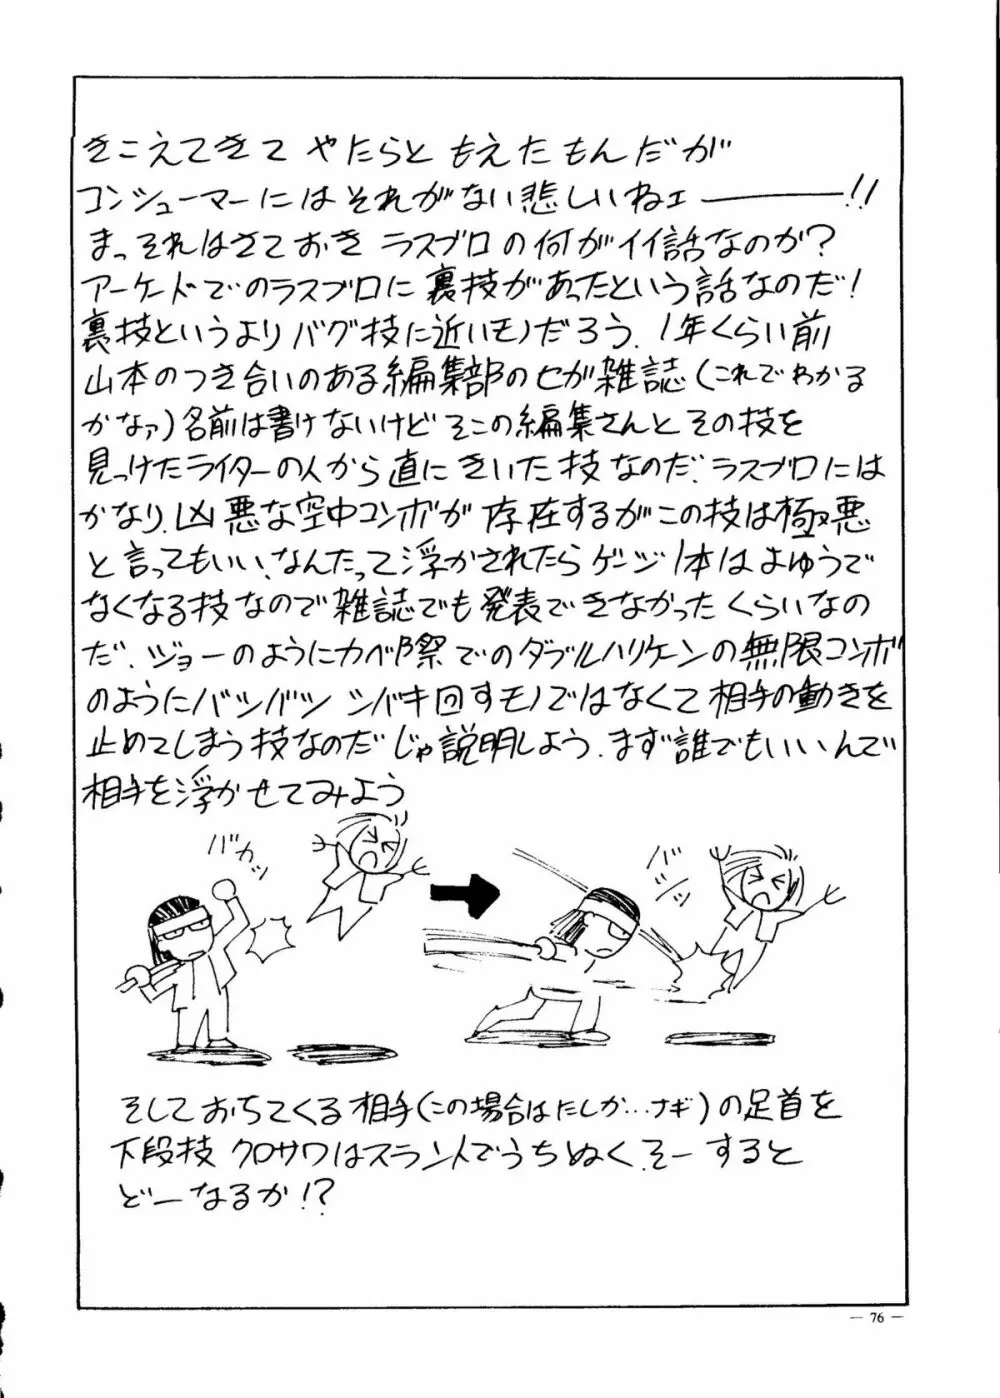 きこえてきて やたらと もえたもんだが
コンシューマーにはそれがない悲しいねェ――――!!
まっそれはさておき ラスブロの何がイイ話なのか?
アーケードでのラスブロに裏技があったという話なのだ!
裏技というより バグ技に近いモノだろう。1年くらい前
山本のつき合いのある編集部のセガ雑誌(これでわかる
かなァ)名前は書けないけど そこの編集さんとその技を
見っけたライターの人から直にきいた技なのだ。ラスブロには
かなり凶悪な空中コンボが存在するがこの技は極悪
と言ってもいい、なんたって浮かされたらゲージ1本はよゆうで
なくなる技なので雑誌でも発表できなかったくらいなの
だ。ジョーのようにカベ際でのダブルハリケーンの無限コンボ
のようにバシバシ シバキ回すモノではなくて相手の動きを
止めてしまう技なのだ じゃ説明しよう。まず誰でもいいんで
相手を浮かせてみよう
バカッ
バシッ
そしておちてくる相手(この場合はたしか…ナギ)の足首を
下段技 クロサワはスラントでうちぬく。そーすると
どーなるか!?
― 76 ―